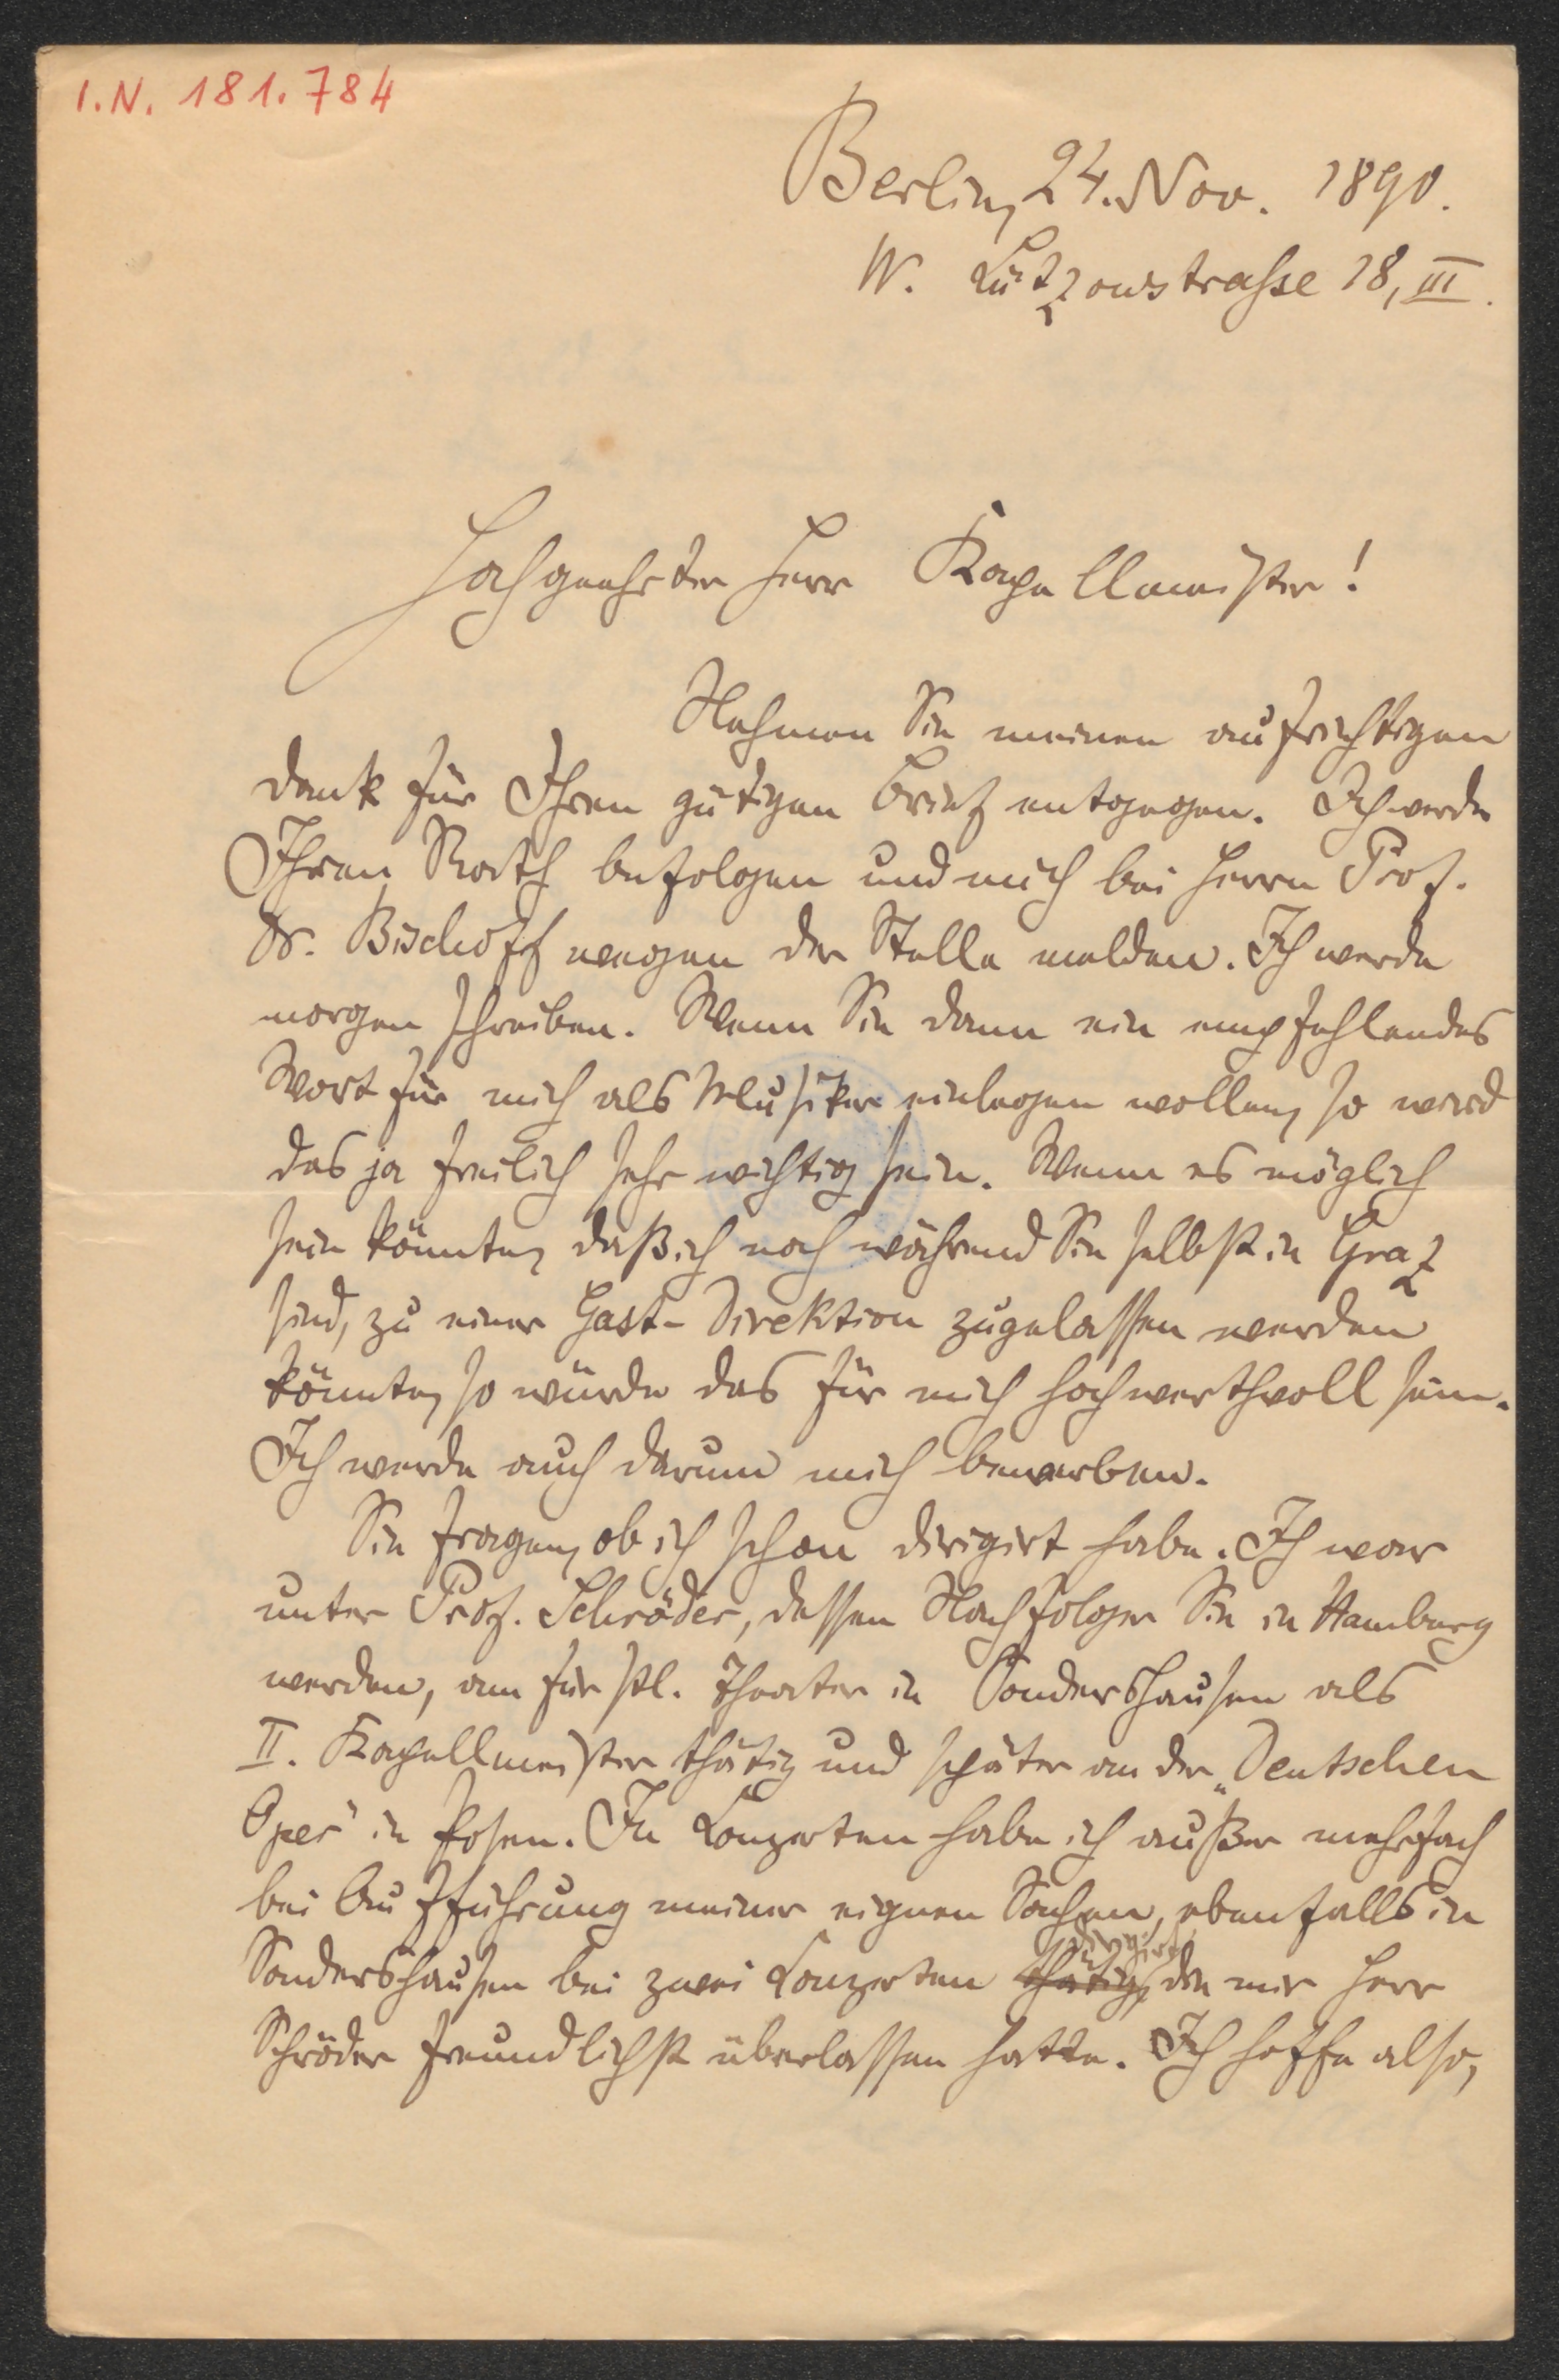 I.N. 181.784
Berlin, 24. Nov. 1890.
W. Lützowstrasse 18, III.
Hochgeehrter Herr Kapellmeister!
Nehmen Sie meinen aufrichtigen
Dank für Ihren gütigen Brief entgegen. Ich werde
Ihren Rath befolgen und mich bei Herrn Prof.
Dr. Bischoff wegen der Stelle melden. Ich werde
morgen schreiben. Wenn Sie dann ein empfehlendes
Wort für mich als Musiker einlegen wollen, so wird
das ja freilich sehr wichtig sein. Wenn es möglich
sein könnte, daß ich noch während Sie selbst in Graz
sind, zu einer Gast-Direktion zugelassen werden
könnte, so würde das für mich hochwerthvoll sein.
Ich werde auch darum mich bewerben.
Sie fragen, ob ich schon dirigirt habe. Ich war
unter Prof. Schröder, dessen Nachfolger Sie in Hamburg
werden, am fürstl. Theater in Sondershausen als
II. Kapellmeister thätig und später an der „Deutschen
Oper" in Posen. In Konzerten habe ich außer mehrfach
bei Aufführung meiner eignen Sachen, ebenfalls in
dirigirt,
Sondershausen bei zwei Konzerten thätig, die mir Herr
Schröder freundlichst überlassen hatte. Ich hoffe also,